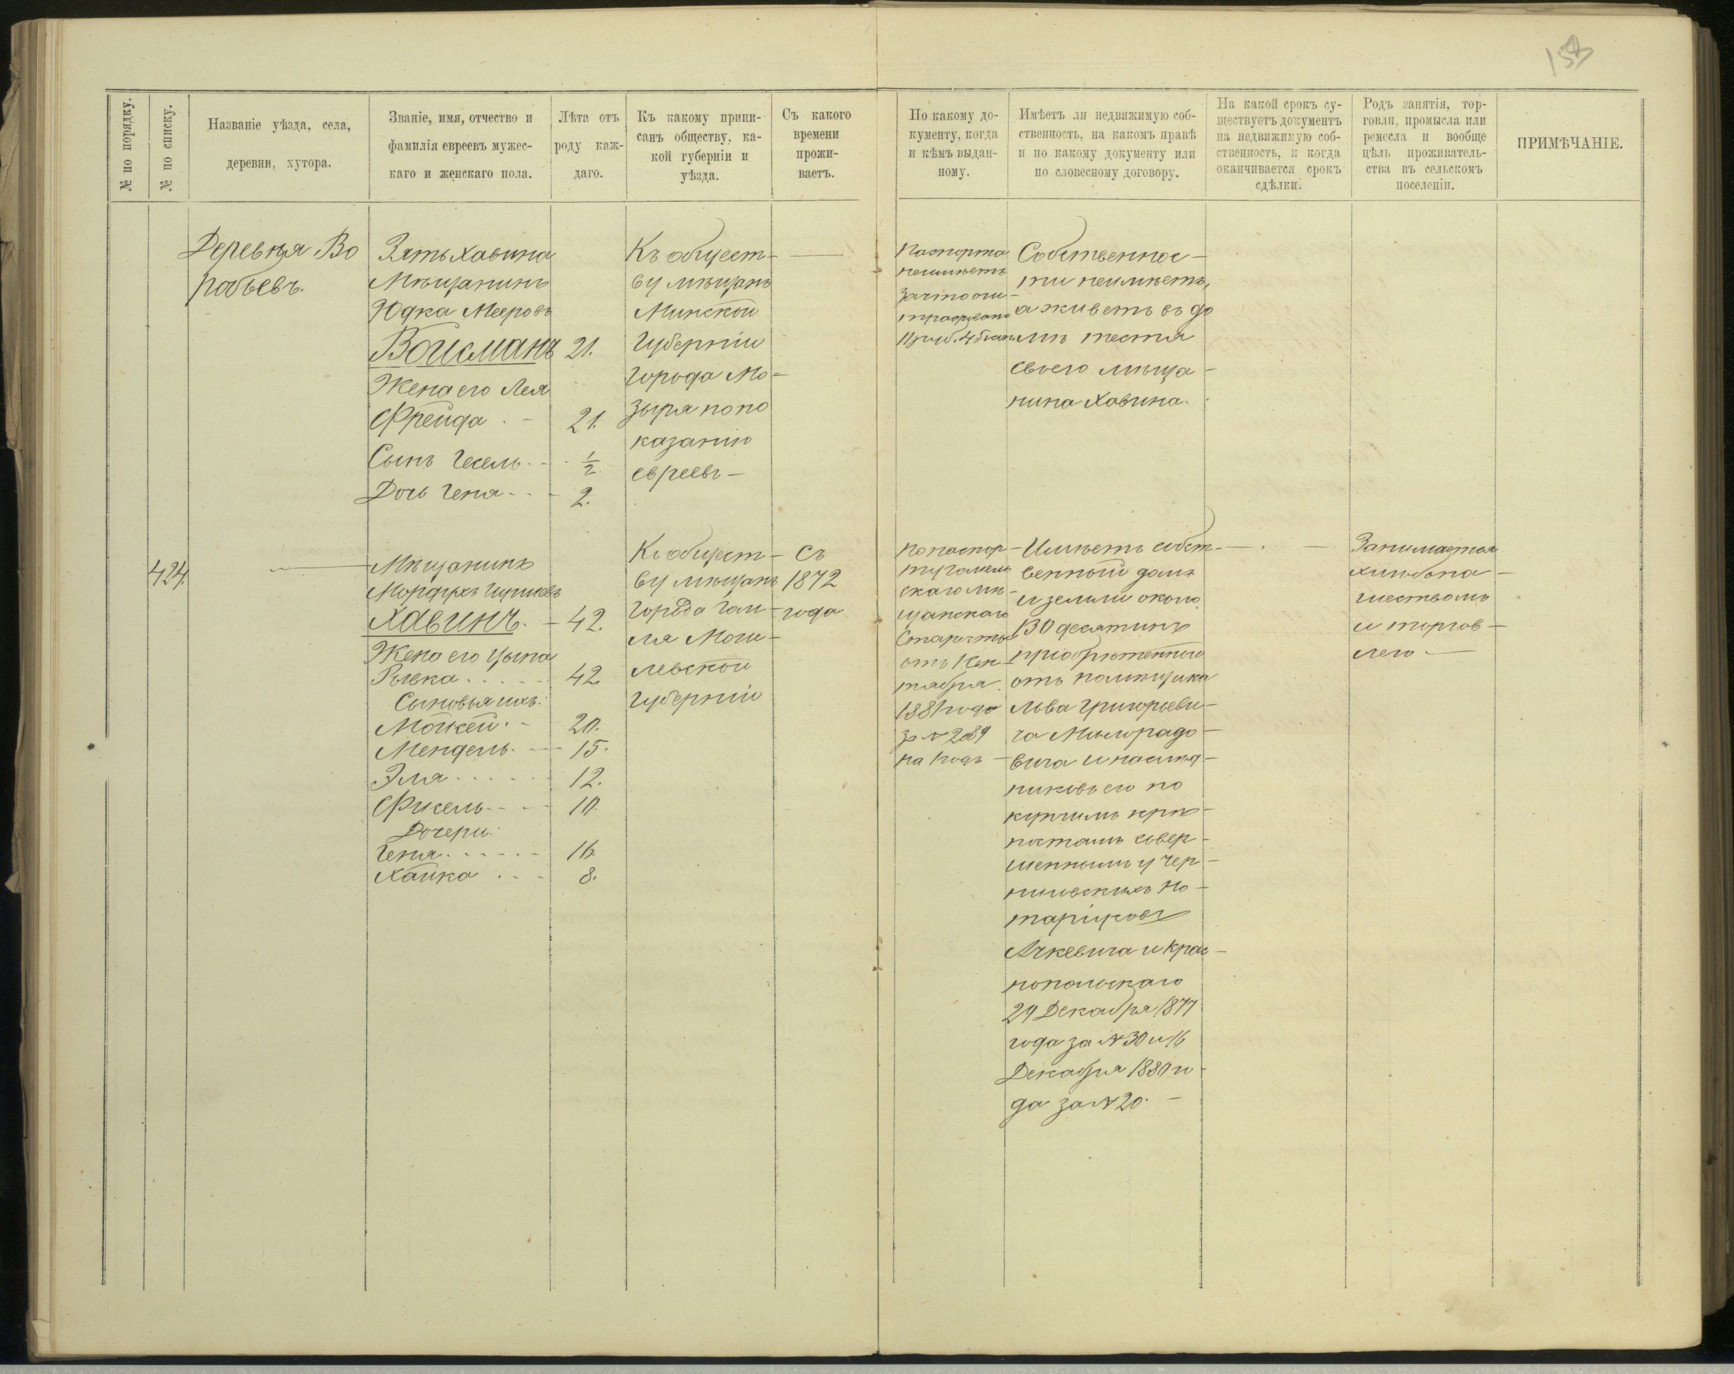 № по порядку.
№ по списку.
Названіе уѣзда, села,
деревни, хутора.
Званіе, имя, отчество и
фамилія евреевъ мужес-
каго и женскаго пола.
Лѣта отъ
роду каж-
даго.
Къ какому припи-
санъ обществу, ка-
кой губерніи и
уѣзда.
Съ какого
времени
прожи-
ваетъ.
По какому до-
кументу, когда
и кѣмъ выдан-
ному.
Имѣетъ ли недвижимую соб-
ственность, на какомъ правѣ
и по какому документу или
по словесному договору.
На какой срокъ су-
ществуетъ документъ
на недвижимую соб-
ственность, и когда
оканчивается срокъ
сдѣлки.
Родъ занятія, тор-
говли, промысла или
ремесла и вообще
цѣль проживатель-
ства въ сельскомъ
поселеніи.
ПРИМѢЧАНІЕ.
Деревня Во
робьевъ.
Зять Хавина
Мѣщанинъ
Юдка Мееровъ
Войсманъ
Жена его Лея
Фрейда
Сынъ Гесель
Дочь Геня
21.
21.
1/2
2.
Къ общест-
ву мѣщанъ
Минской
Губерніи
города Мо-
зыря по по
казанію
евреевъ
Паспорта
неимѣетъ
Собственнос-
ти неимѣетъ,
а живетъ въ до
мѣ тестя
своего мѣща-
нина Хавина.
424.
Мѣщанинъ
Мордухъ
Хавинъ.
Жена его Цыпа
Рывка
Сыновья ихъ:
Мойсей
Мендель
Эля
Фисель
Дочери:
Геня
Хайка
42.
42
20.
15.
12.
10.
16.
8.
Къ общест-
ву мѣщанъ
города Гом-
ля Моги-
левской
Губерніи
Съ
1872
года
по паспор-
ту Гомель
скаго мѣ-
щанскаго
Старосты
отъ
тября
1881 года
за № 289
на годъ
Имѣетъ собст-
венный домъ
и земли около
130 десятинъ
пріобрѣтенной
отъ помѣщика
Льва Григорьеви-
ча Милорадо-
вича и наслѣд-
никовъ его по
купчимъ крѣ-
постямъ совер-
шеннымъ у Чер-
ниговскихъ но-
таріусовъ
Ачкевича и Крас-
нопольскаго
29 Декабря 1877
года за № 30 и 16
Декабря 1880 го-
да за № 20.
Занимается
хлѣбопа-
шествомъ
и торгов-
лею